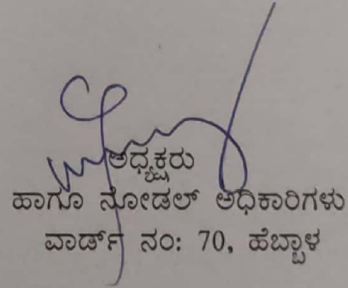 ಅಧ್ಯಕ್ಷರು
ಹಾಗೂ ನೋಡಲ್ ಅಧಿಕಾರಿಗಳು
ವಾರ್ಡ್ ನಂ: 70, ಹೆಬ್ಬಾಳ